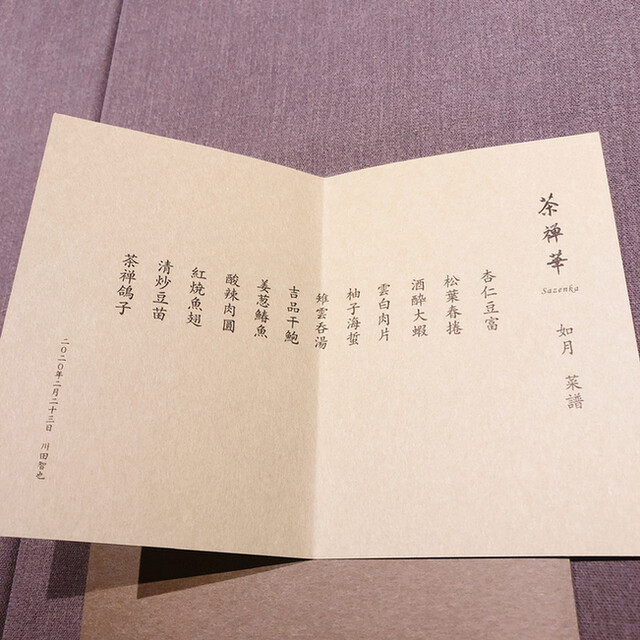 茶禅華
Sazenka
如月 菜譜
杏仁豆富
松葉春捲
酒酔大蝦
雲白肉片
柚子海蜇
雉雲呑湯
吉品干鮑
姜葱鰆魚
酸辣肉圓
紅焼魚翅
清炒豆苗
茶禅鴿子
二〇二〇年二月二十三日 川田智也